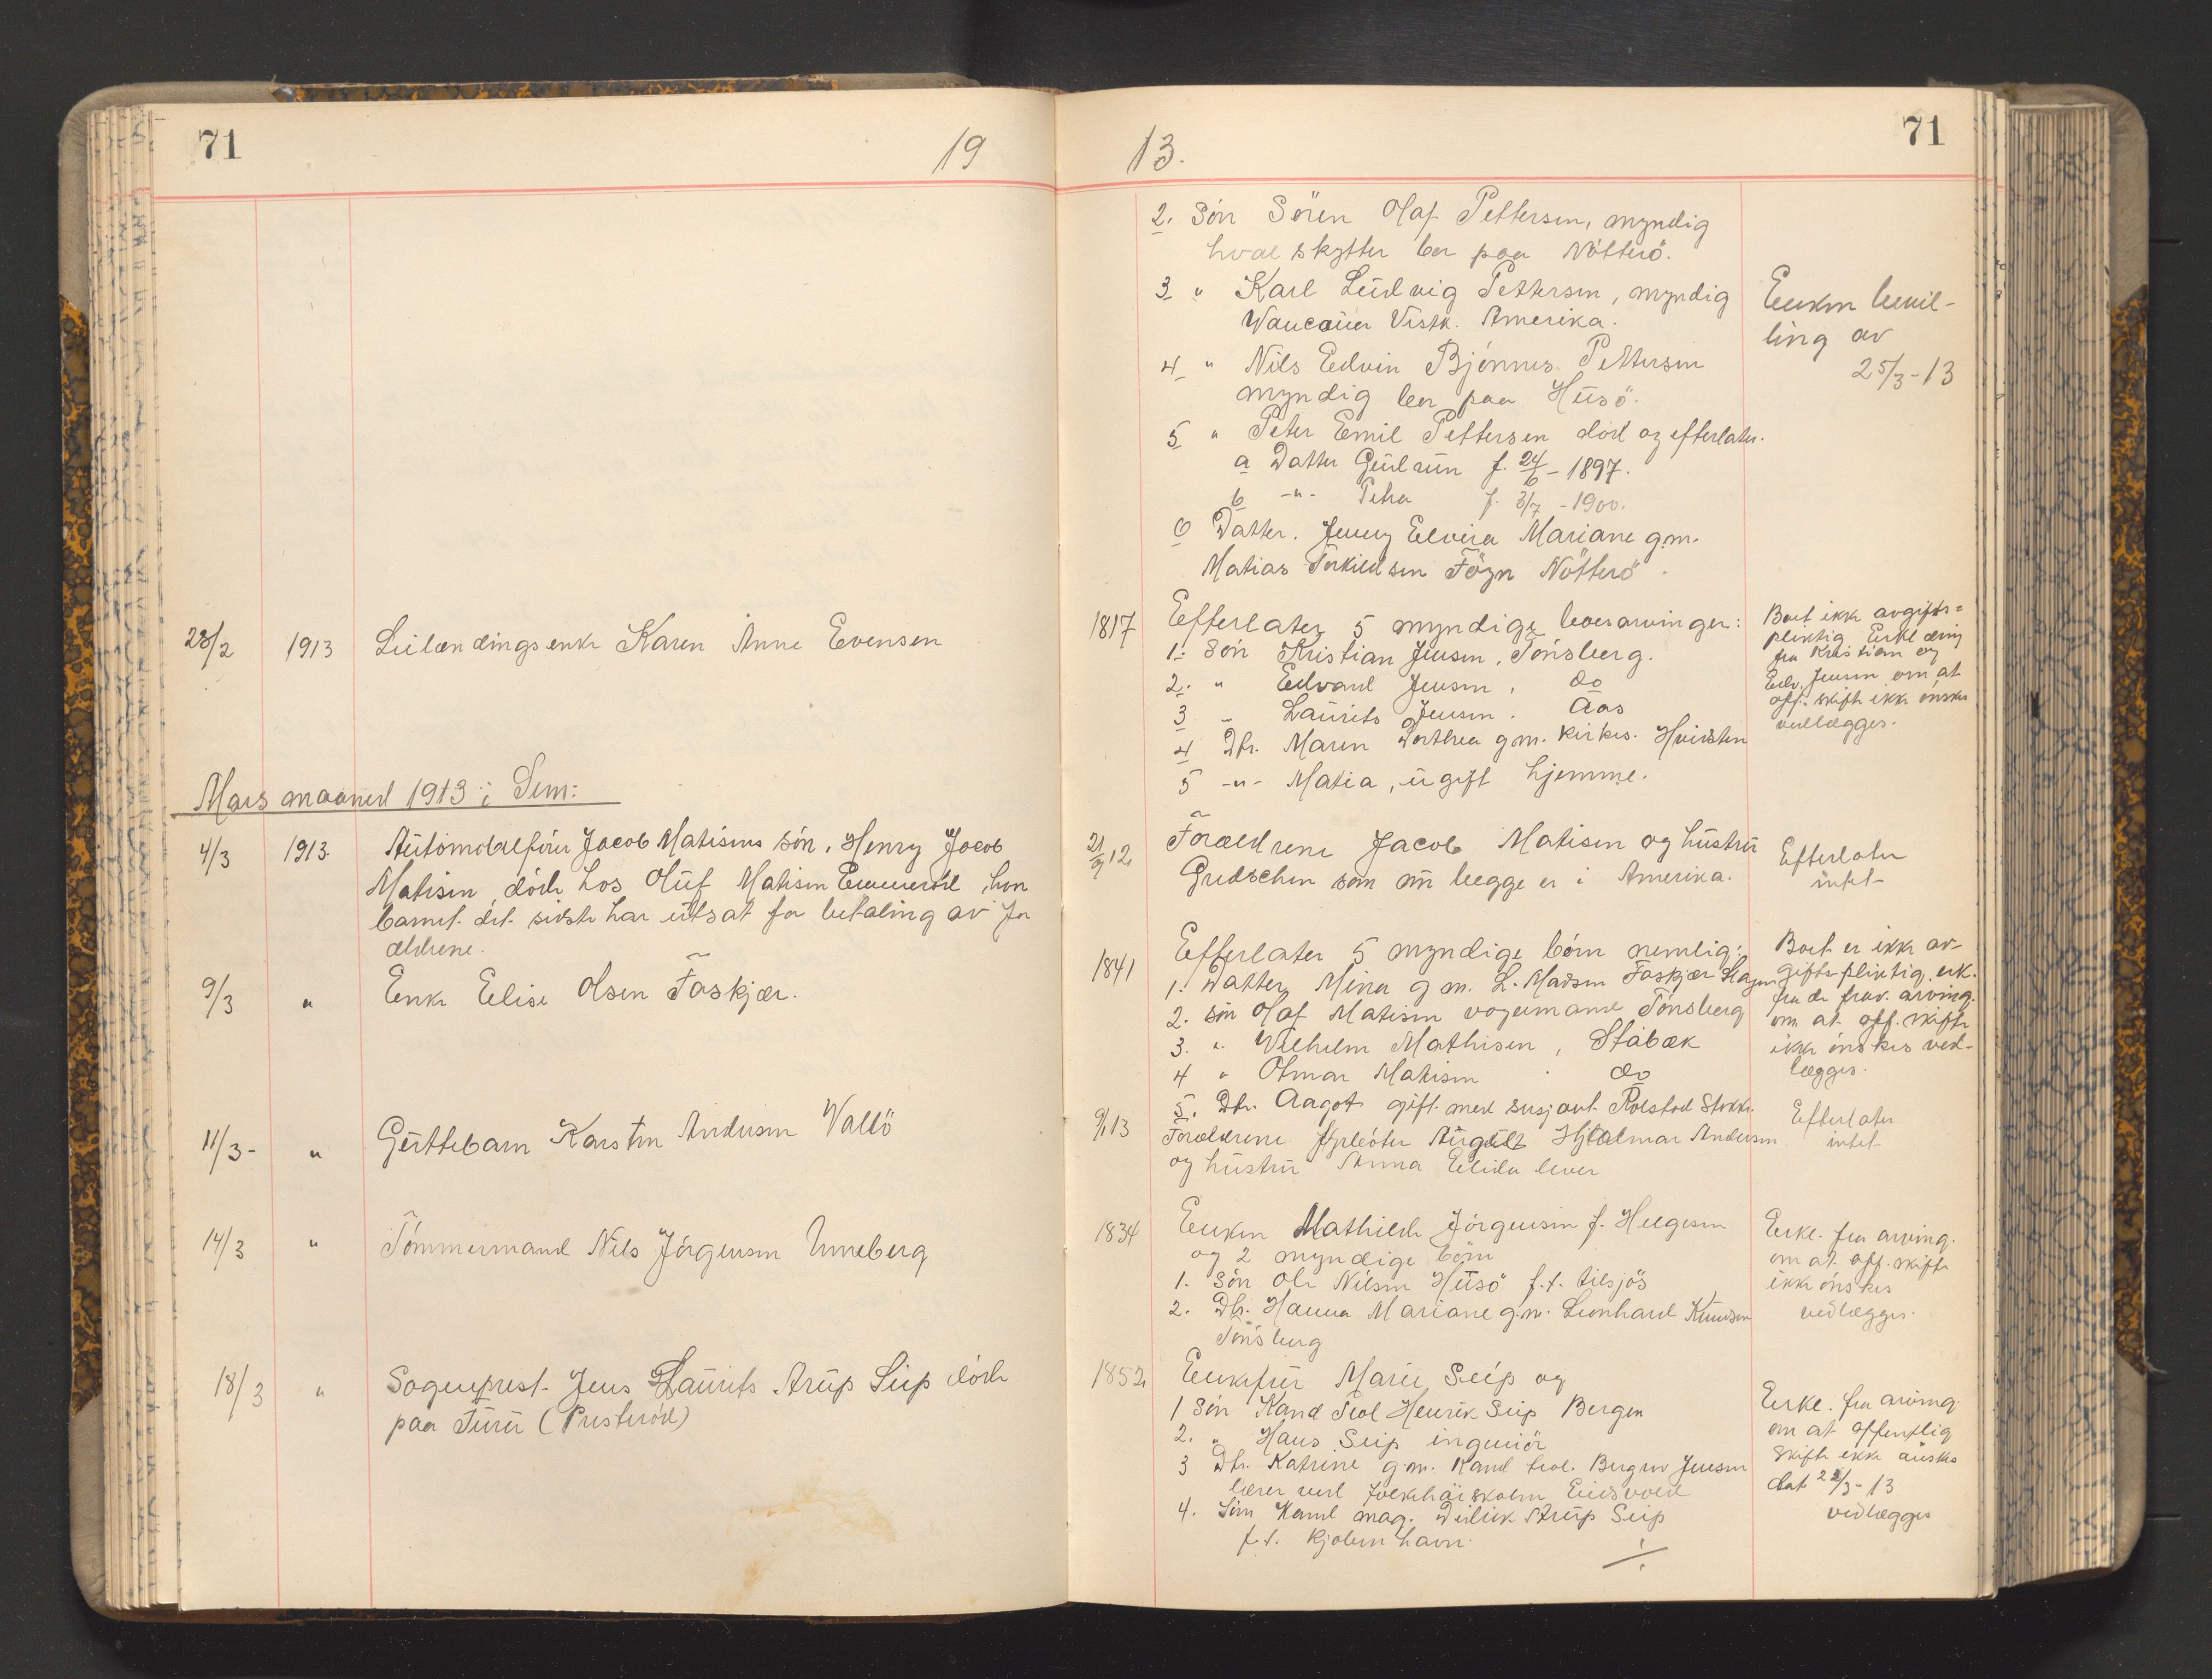 71
19
28/2 1913 Leilændingsenke Karen Anne Evensen
Mars maaned 1913 i Sem:
4/3 1913. Automobilfører Jacob Matisens søn, Henry Jacob
Matisen, döde hos Oluf Matisen, hvor
barnet det sidste har utsat for betaling av for
ældrene.
9/3 " Enke Elise Olsen Taskjær.
11/3- " Guttebarn Karsten Andersen Vallö
14/3 " Tömmermand Nils Jörgensen Unneberg
18/3 " Sogneprest Jens Laurits Arup Seip döde
paa Furu (Presteröd)
71
13.
2. Sön Sören Olaf Pettersen, myndig
hvalskytter bor paa Nötterö.
3 " Karl Ludvig Pettersen, myndig
Wancouver Vestk. Amerika.
4 " Nils Edvin Bjönnes Pettersen
myndig bor paa Husö.
5 " Peter Emil Pettersen död og efterlater.
a Datter Gudrun f. 24/6 - 1897.
b -"- Petra f. 3/7 - 1900.
6 Datter. Jenny Elvira Mariane g.m.
Matias Torkildsen Föyn Nötterö.
Enken bevil-
ling av
25/3-13
1817 Efterlater 5 myndige boesarvinger:
1. Sön Kristian Jensen, Tönsberg.
2. " Edvard Jensen, do
3 " Laurits Jensen. Aas
4 Dtr. Maren Dorthea g.m. Kirkes. Hvidsten
5 -"- Matia, ugift hjemme.
Boet ikke avgifts=
pliktig Erklæring
fra Kristian og
Edv. Jensen om at
off. skifte ikke önskes
vedlægges.
21/9 12 Forældrene Jacob Matisen og hustru
Gudschen som nu begge er i Amerika.
Efterlater
intet
1841 Efterlater 5 myndige börn nemlig:
1. Datter Mina g.m. L. Madsen Taskjær Slagen
2. Sön Olaf Matisen vognmand Tönsberg
3. " Wilhelm Mathisen, Stabæk
4 " Otmar Matisen do
5. Dtr. Aagot gift med sersjant Rolstad Stokke
Boet er ikke av-
giftspliktig, erk.
fra de frav. arving.
om at off. skifte
ikke önskes ved-
lægges.
9/1 13 Forældrene August Hjalmar Andersen
og hustru Anna Elida lever
Efterlater
intet
1834 Enken Mathilde Jörgensen f. Helgesen
og 2 myndige börn
1. Sön Ole Nilsen Husö f.t. tilsjös
2. Dtr. Hanna Mariane g.m. Leonhard Knudsen
Tönsberg
Erkl. fra arving.
om at off. skifte
ikke önskes
vedlægges.
1852 Enkefru Marie Seip og
1 Sön Kand Teol Henrik Seip Bergen
2. " Hans Seip ingeniör
3 Dtr. Katrine g.m. Kand teol. Jensen
lærer ved folkehöiskolen Eidsvold
4. Sön Kand mag. Didrik Arup Seip
f.t. Kjöbenhavn.
Erkl. fra arving.
om at offentlig
skifte ikke önskes
dat 22/3-13
vedlægges